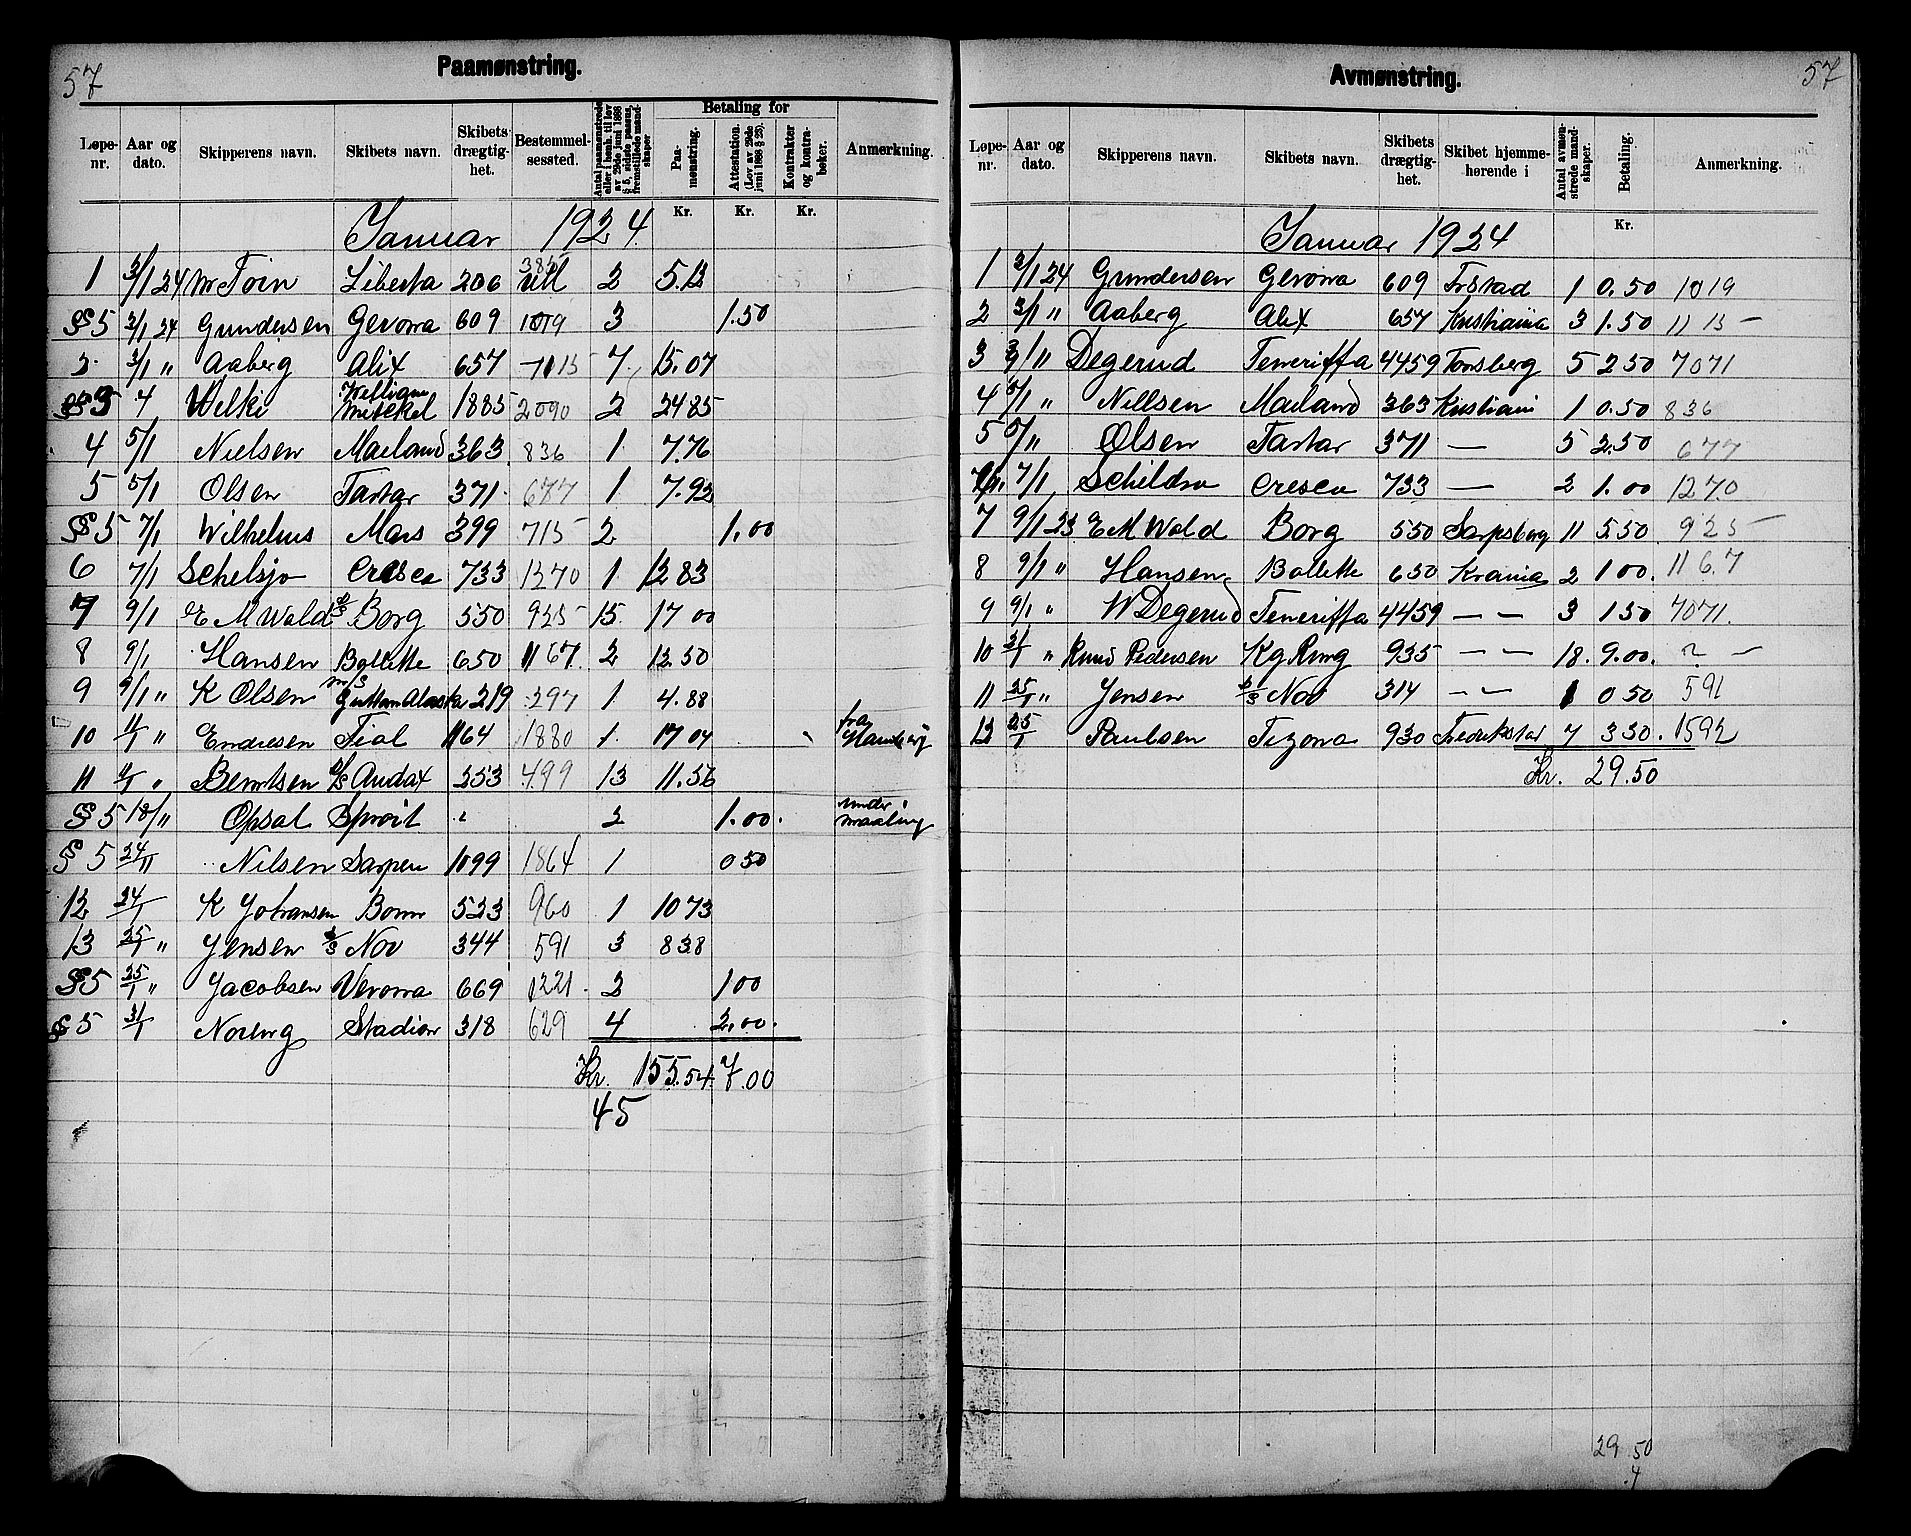 57
Paamønstring.
Løpe-nr. Aar og dato. Skipperens navn. Skibets navn. Skibets drægtighet. Bestemmelsessted. Antal paamønstrede eller i henh. til lov av 29de juni 1888 § 5, sidste passus, fremstillede mandskaper Betaling for Paamønstring. Attestation. (Lov av 29de juni 1888 § 23). Kontrakter og kontrabøker. Anmerkning.
Kr. Kr. Kr.
Januar 1924.
1 2/1 24 Liberta 206 2 5.12
§ 5 2/1 24 Gundersen Gerona 609 1019 3 1.50
2 3/1 " Aaberg Alix 657 1115 7 15.07
4 Wilki William Mitchel 1885 2090 2 24 85
4 5/1 Nielsen Mailand 363 836 1 7.76
5 5/1 Olsen Tartar 371 677 1 7.92
§ 5 7/1 Wilhelms Mars 399 715 2 1.00
6 7/1 Schelsjo Cresco 733 1270 1 12 83
7 9/1 E M Wold D/S Borg 550 925 15 17 00
8 9/1 Hansen Bollette 650 1167 2 12.50
9 9/1 " K Olsen M/S 219 297 1 4.88
10 11/1 " Endresen Fial 1164 1880 1 17 04 fra Hamburg
11 11/1 " Berntsen D/S Audax 253 499 13 11.56
§ 5 18/1 " Opsal Sprøit " 2 1.00. under maaling
§ 5 24/1 Nilsen Sarpen 1099 1864 1 0 50
12 24/1 K Johansen Bonn 523 960 1 10 73
13 25/1 " Jensen D/S Nov 344 591 3 8 38
§ 5 25/1 " Jacobsen Verona 669 1221 2 1 00
§ 5 31/1 Noreng Stadion 318 629 4 2.00.
Kr. 155.54 7.00
45
57
Avmønstring.
Løpe-nr. Aar og dato. Skipperens navn. Skibets navn. Skibets drægtighet. Skibet hjemmehørende i Antal avmønstrede mandskaper. Betaling. Anmerkning.
Kr.
Januar 1924
1 2/1 24 Gundersen Gerona 609 Frstad 1 0.50 1019
2 3/1 " Aaberg Alix 657 Kristiania 3 1.50 1115
3 3/1 " Degerud Teneriffa 4459 Tønsberg 5 2 50 7071
4 5/1 " Nillsen Mailand 363 Kristiani 1 0.50 836
5 5/1 Olsen Tartar 371 — 5 2.50 677
7/1 Schildso Cresco 733 — 2 1.00 1270
7 9/1 23 E M Wold Borg 550 Sarpsborg 11 5.50 925
8 9/1 " Hansen Bollette 650 Krania 2 1 00. 1167
9 9/1 " W Degerud Teneriffa 4459 — — 3 1 50 7071.
10 21/1 " Knud Pedersen Kg Ring 935 — — 18. 9.00. ? —
11 25/1 " Jensen D/S Nov 314 — — 1 0 50 591
12 25/1 Paulsen Tizona 930 Fredrikstad 7 3 50. 1592
Kr. 29.50
29 50